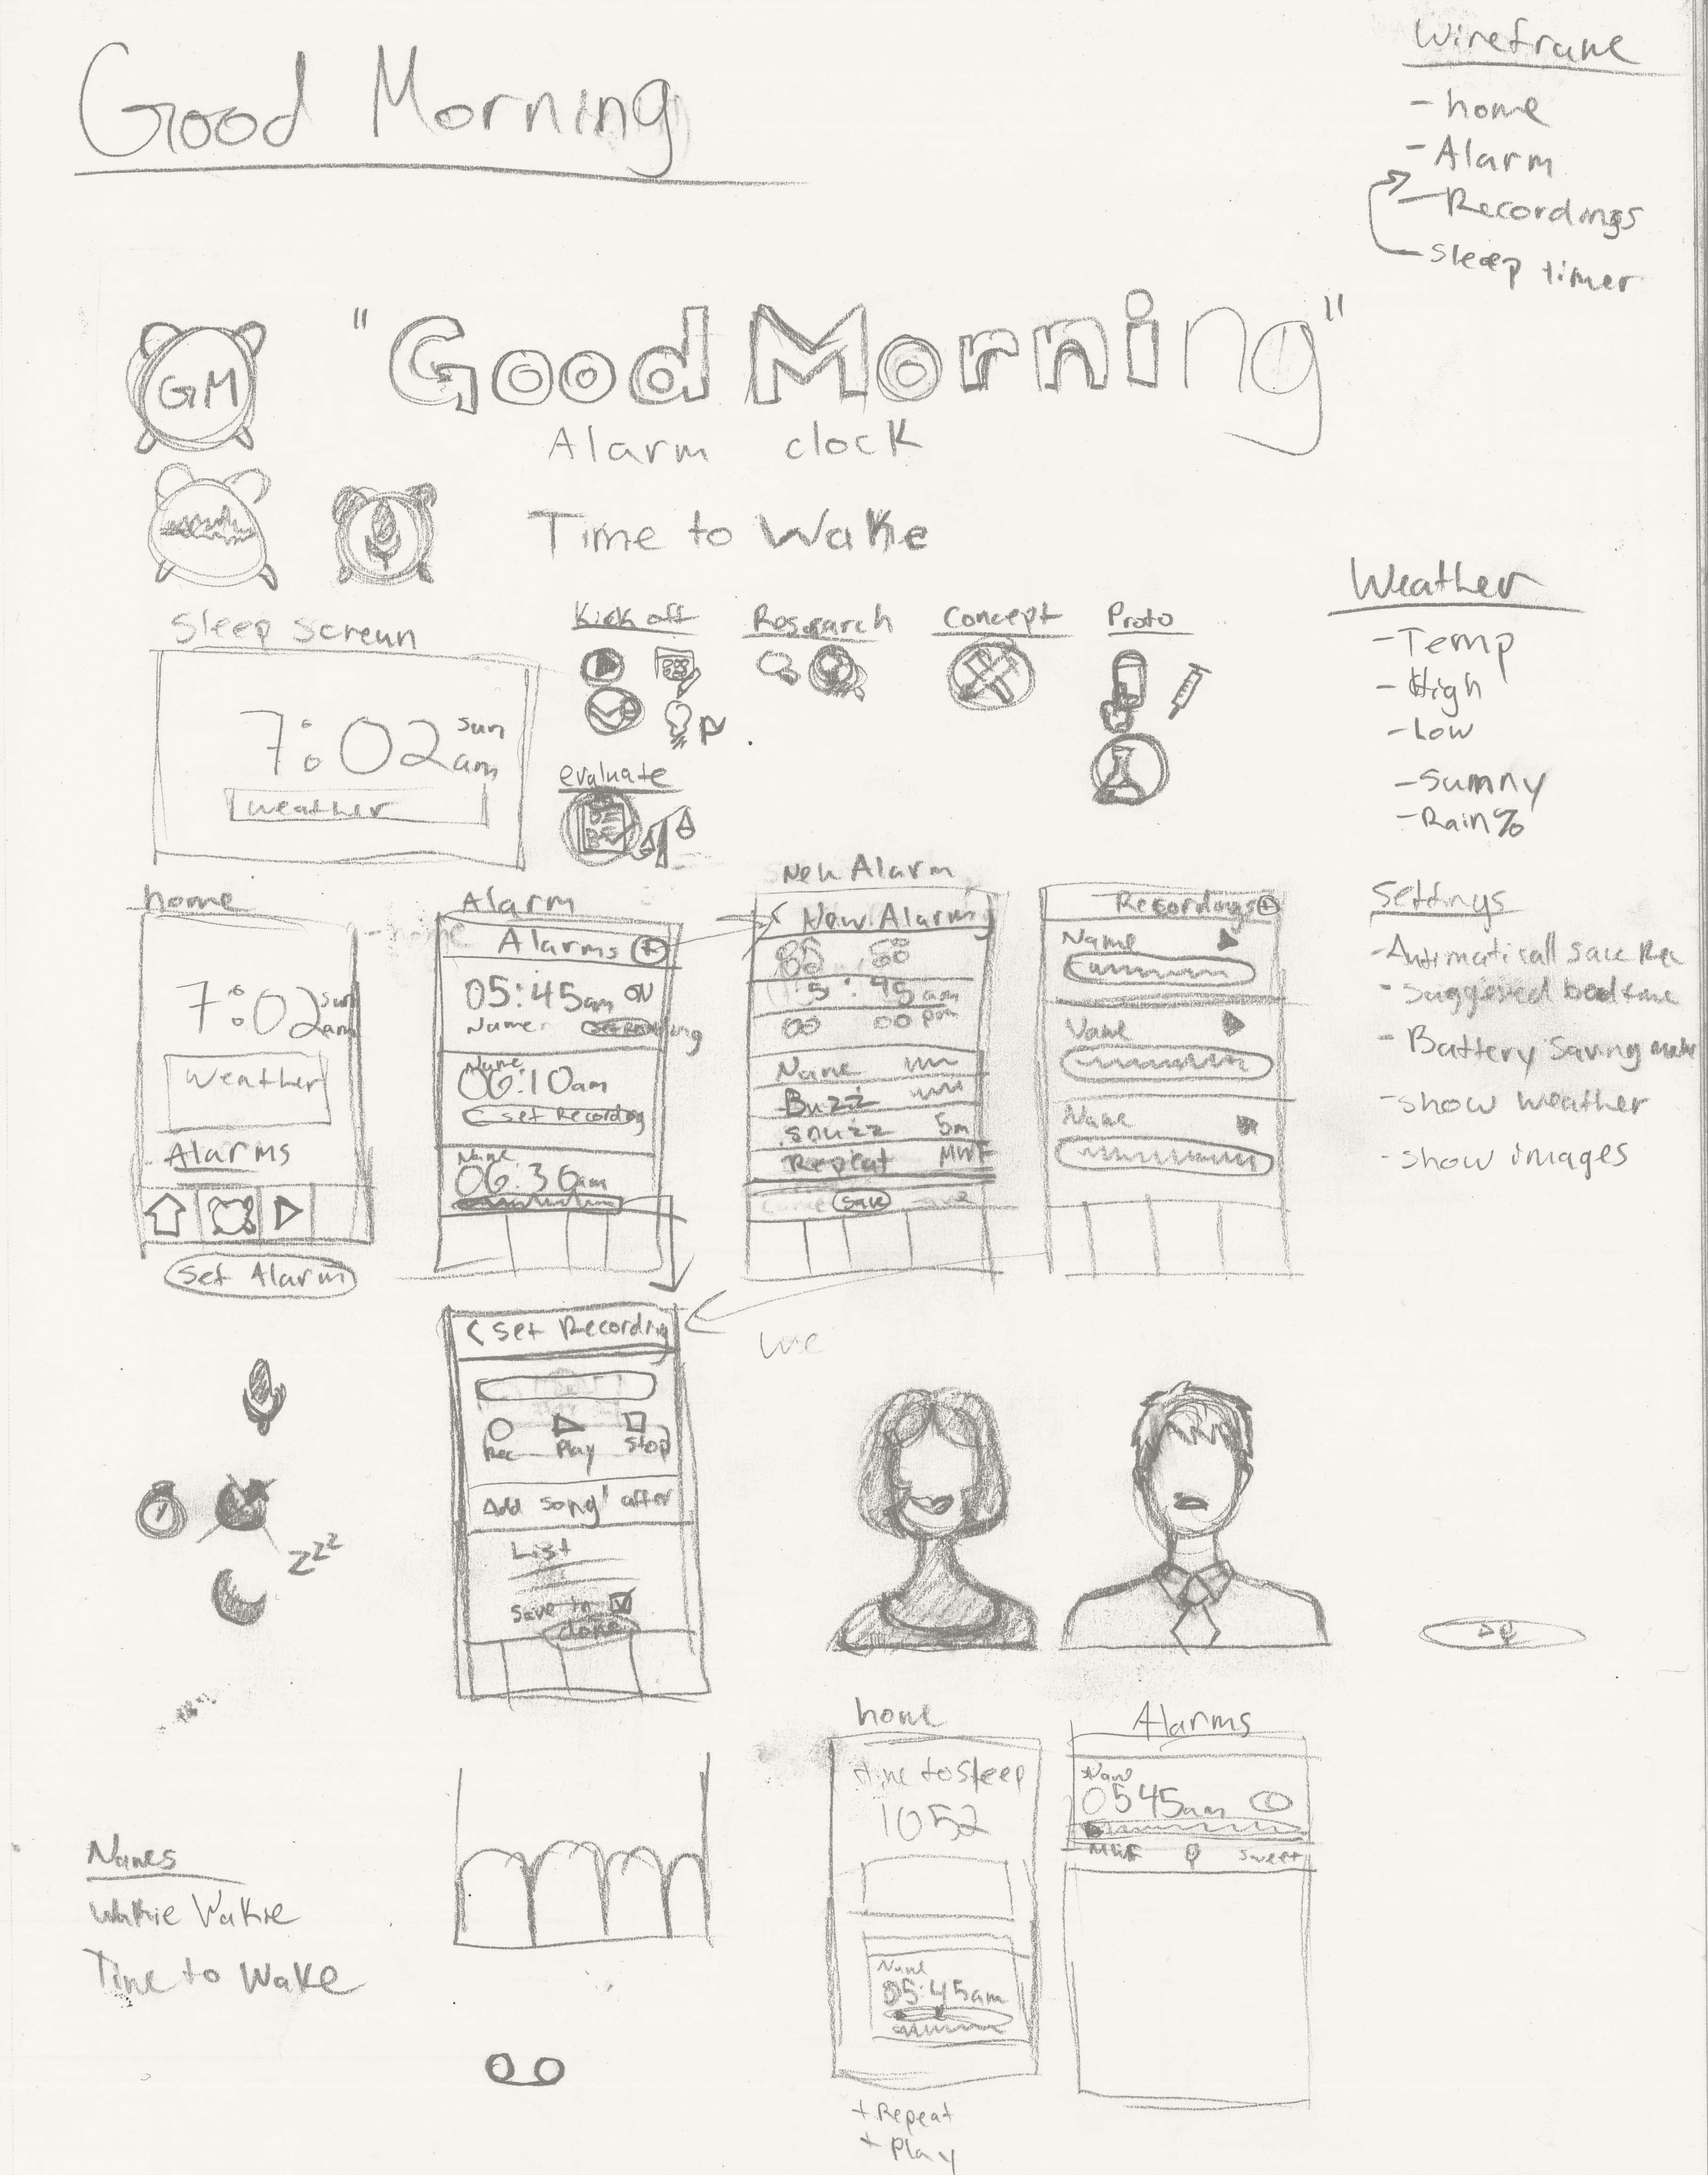 Good Morning
Wireframe
- home
- Alarm
- Recordings
- Sleep timer
GM
"Good Morning"
Alarm clock
Time to Wake
Sleep screen
7:02 sun am
weather
Kick off
Research
Concept
Proto
evaluate
Weather
- Temp
- High
- Low
- Sunny
- Rain %
Settings
- Suggested bedtime
- Battery Saving mode
- show weather
- show images
home
7:02 sun am
Weather
Alarms
Set Alarm
Alarm
Alarms +
05:45am ON
Name
Name
06:10am
set Recording
Name
06:30am
New Alarm
< New Alarm
5:45 am
00 00 pm
Name
Buzz
snuzz 5m
Repeat MWF
save
Recordings +
Name
Name
Name
< Set Recording
Rec Play Stop
Add song after
List
Save to
done
we
zzz
home
time to sleep
1052
Name
05:45am
+ Repeat
+ Play
Alarms
Name
0545am
MWF
Names
Wakie Wakie
Time to Wake